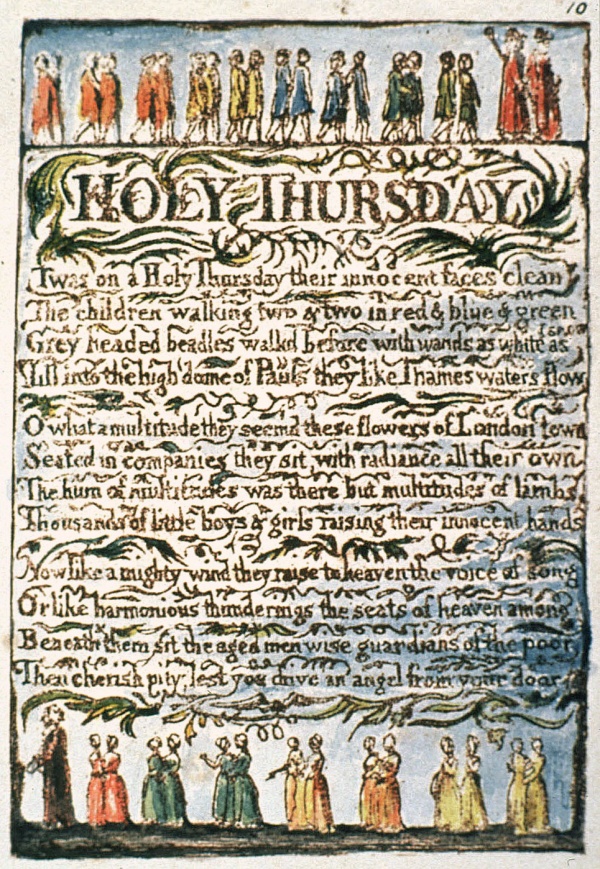 10
HOLY THURSDAY
Twas on a Holy Thursday their innocent faces clean
The children walking two & two in red & blue & green
Grey headed beadles walkd before with wands as white as snow
Till into the high dome of Pauls they like Thames waters flow
O what a multitude they seemd these flowers of London town
Seated in companies they sit with radiance all their own
The hum of multitudes was there but multitudes of lambs
Thousands of little boys & girls raising their innocent hands
Now like a mighty wind they raise to heaven the voice of song
Or like harmonious thunderings the seats of heaven among
Beneath them sit the aged men wise guardians of the poor
Then cherish pity; lest you drive an angel from your door